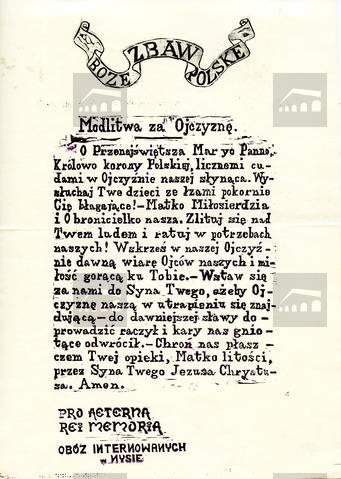 BOŻE ZBAW POLSKĘ
Modlitwa za Ojczyznę.
O Przenajświętsza Maryo Panno,
Królowo korony Polskiej, licznemi cu-
dami w Ojczyźnie naszej słynąca. Wy-
słuchaj Twe dzieci ze łzami pokornie
Cię błagające! – Matko Miłosierdzia
i Obronicielko nasza. Zlituj się nad
Twem ludem i ratuj w potrzebach
naszych! Wskrześ w naszej Ojczyź-
nie dawną wiarę Ojców naszych i mi-
łość gorącą ku Tobie. – Wstaw się
za nami do Syna Twego, ażeby Oj-
czyznę naszą w utrapieniu się znaj-
dującą – do dawniejszej sławy do-
prowadzić raczył i kary nas gnio-
tące odwrócił. – Chroń nas płasz-
czem Twej opieki, Matko litości,
przez Syna Twego Jezusa Chrystu-
sa. Amen.
PRO AETERNA
REI MEMORIA
OBÓZ INTERNOWANYCH
w NYSIE